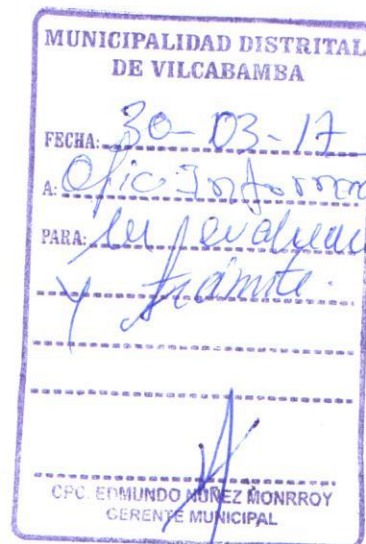 MUNICIPALIDAD DISTRITAL
DE VILCABAMBA
FECHA: 30-03-17
A: Ofic. Inform
PARA: su evaluac
y trámite.
CPC. EDMUNDO NUÑEZ MONRROY
GERENTE MUNICIPAL